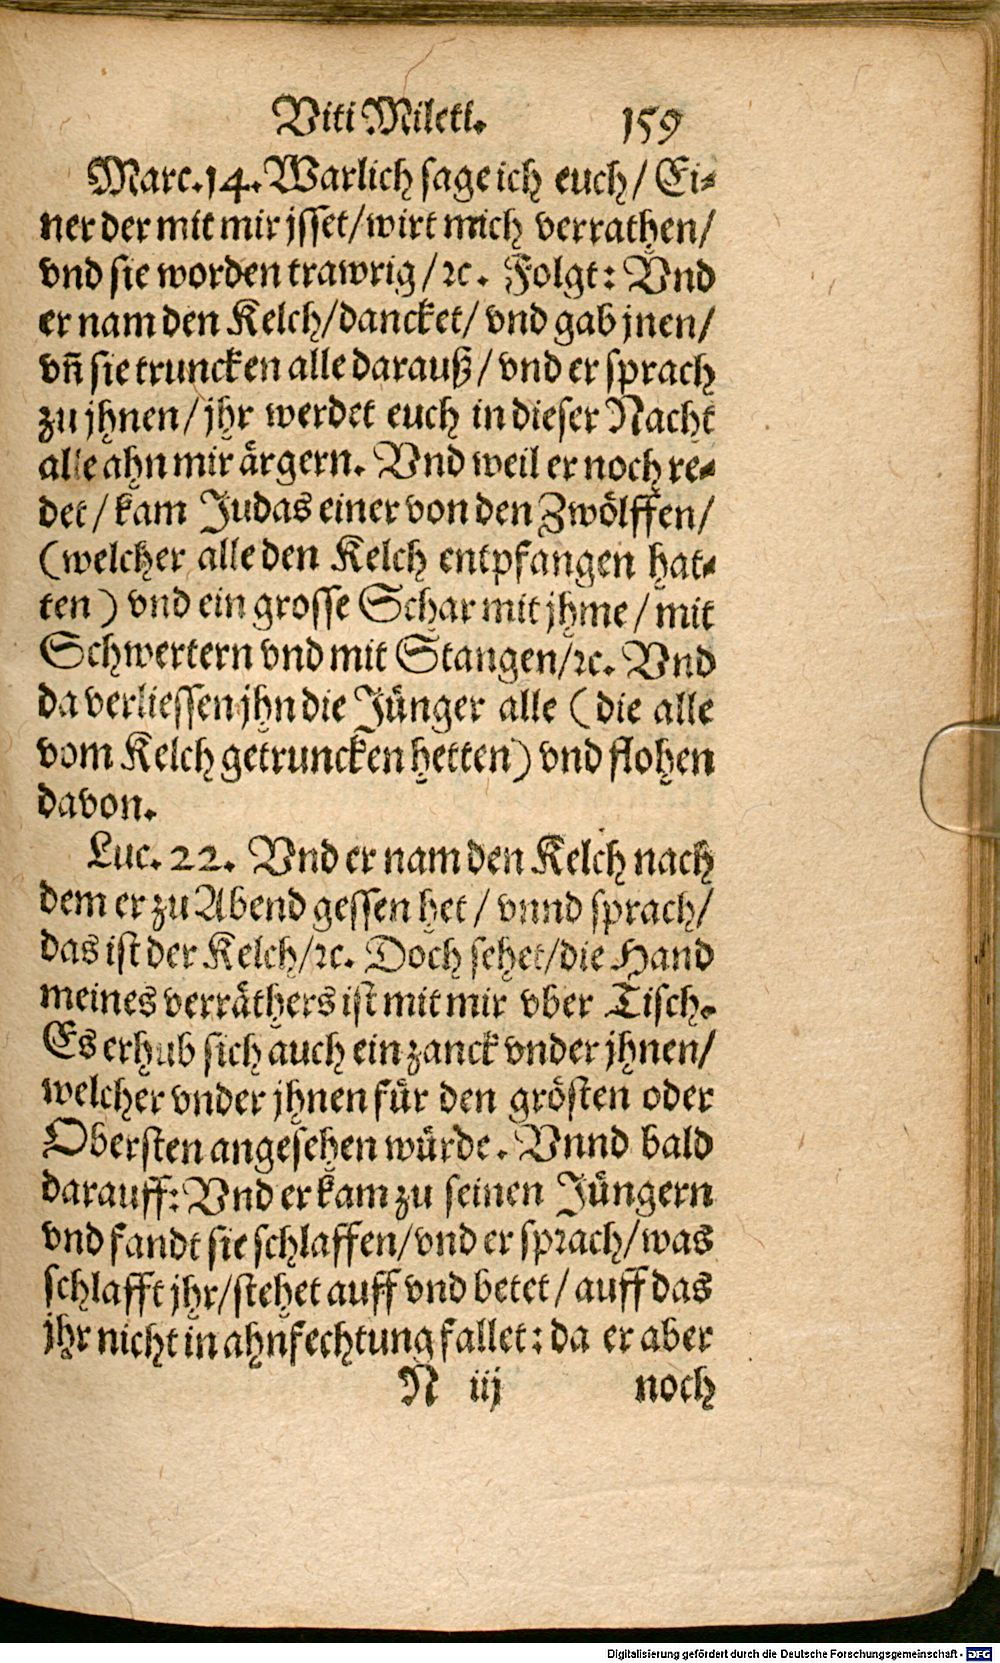 Viti Mileti. 159
Marc. 14. Warlich sage ich euch/ Ei-
ner der mit mir jsset/ wirt mich verrathen/
vnd sie worden trawrig/ ꝛc. Folgt: Vnd
er nam den Kelch/ dancket/ vnd gab jnen/
vñ sie truncken alle darauß/ vnd er sprach
zu jhnen/ jhr werdet euch in dieser Nacht
alle ahn mir ärgern. Vnd weil er noch re-
det/ kam Judas einer von den Zwölffen/
(welcher alle den Kelch entpfangen hat-
ten) vnd ein grosse Schar mit jhme/ mit
Schwertern vnd mit Stangen/ ꝛc. Vnd
da verliessen jhn die Jünger alle (die alle
vom Kelch getruncken hetten) vnd flohen
davon.
Luc. 22. Vnd er nam den Kelch nach
dem er zu Abend gessen het/ vnnd sprach/
das ist der Kelch/ ꝛc. Doch sehet/ die Hand
meines verräthers ist mit mir vber Tisch.
Es erhub sich auch ein zanck vnder jhnen/
welcher vnder jhnen für den grösten oder
Obersten angesehen würde. Vnnd bald
darauff: Vnd er kam zu seinen Jüngern
vnd fandt sie schlaffen/ vnd er sprach/ was
schlafft jhr/ stehet auff vnd betet/ auff das
jhr nicht in ahnfechtung fallet: da er aber
N iij noch
Digitalisierung gefördert durch die Deutsche Forschungsgemeinschaft - DFG